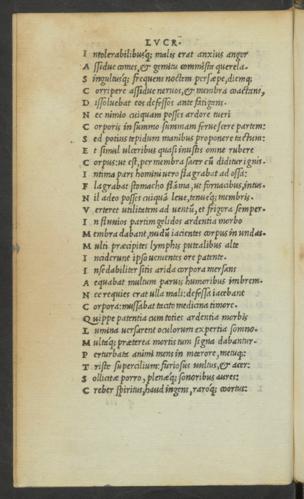 LVCR.
I ntolerabilibusq; malis erat anxius angor
A ssidue comes, & gemitu commista querela.
S ingultusq; frequens noctem persæpe, diemq;
C orripere assidue neruos, & membra coactans,
D issoluebat eos defessos ante fatigans.
N ec nimio cuiquam posses ardore tueri
C orporis in summo summam feruescere partem:
S ed potius tepidum manibus proponere tactum:
E t simul ulceribus quasi inustis omne rubere
C orpus: ut est, per membra sacer cū diditur ignis.
I ntima pars homini uero flagrabat ad ossa:
F lagrabat stomacho flāma, ut fornacibus, intus.
N il adeo posses cuiquā leue, tenueq; membris
V erteret utilitatem ad uentū, et frigora semper.
I n fluuios partim gelidos ardentia morbo
M embra dabant, nudū iacientes corpus in undas.
M ulti præcipites lymphis putealibus alte
I nciderunt ipso uenientes ore patente.
I nsedabiliter sitis arida corpora mersans
A equabat multum paruis humoribus imbrem.
N ec requies erat ulla mali: defessa iacebant
C orpora: mussabat tacito medicina timore.
Q uippe patentia cum toties ardentia morbis
L umina uersarent oculorum expertia somno.
M ultaq; præterea mortis tum signa dabantur.
P erturbata animi mens in mœrore, metuq;
T riste supercilium: furiosus uultus, & acer:
S ollicitæ porro, plenæq; sonoribus aures:
C reber spiritus, haud ingens, raroq; coortus: